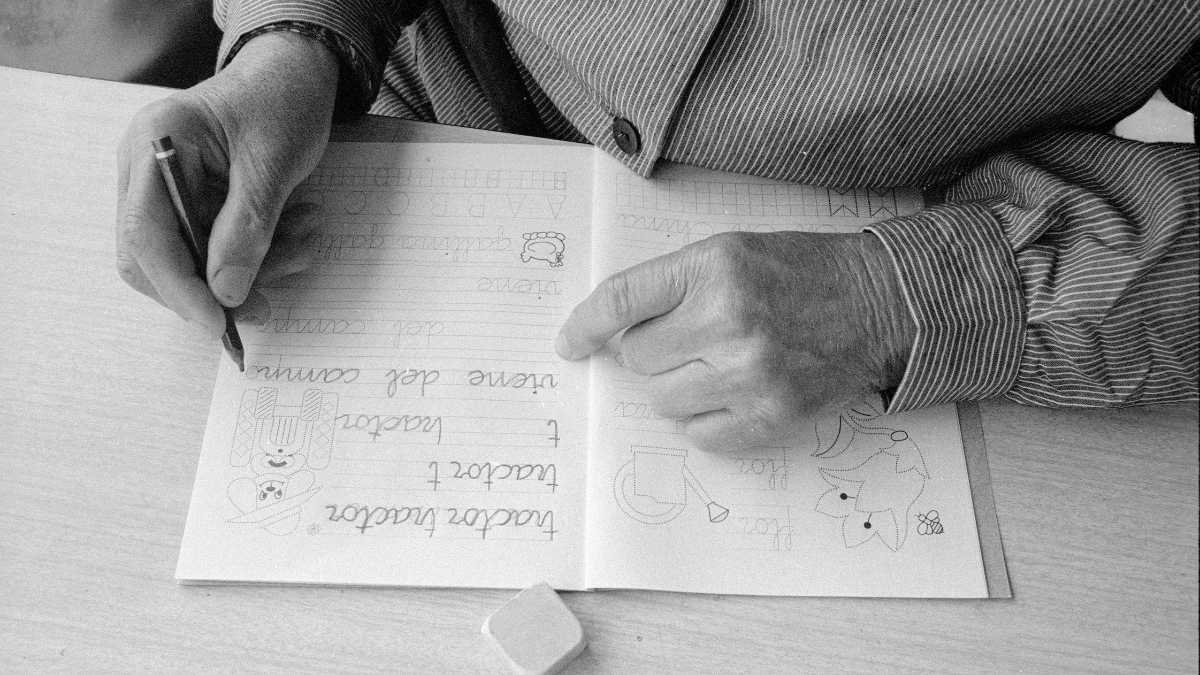 flor
flor
tractor tractor
tractor t
t tractor
viene del campo
del campo
viene
gallina